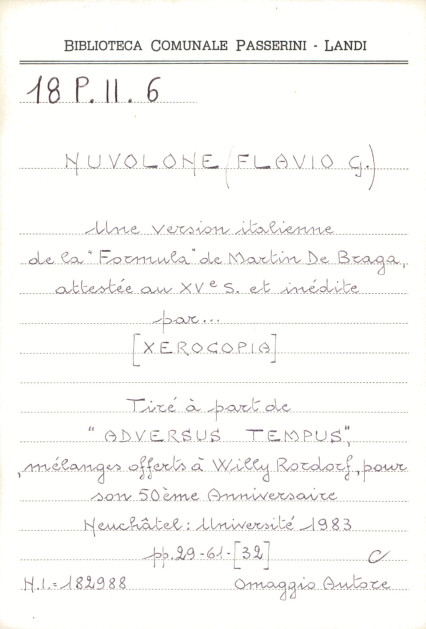 BIBLIOTECA COMUNALE PASSERINI - LANDI
18 P. II. 6
NUVOLONE (FLAVIO G.)
Une version italienne
de la "Formula" de Martin De Braga,
attestée au XVe S. et inédite
par...
[XEROCOPIA]
Tiré à part de
"ADVERSUS TEMPUS",
,mélanges offerts à Willy Rordorf, pour
son 50ème Anniversaire
Neuchâtel: Université 1983
pp. 29-61-[32] C
N.I.=182988 Omaggio Autore